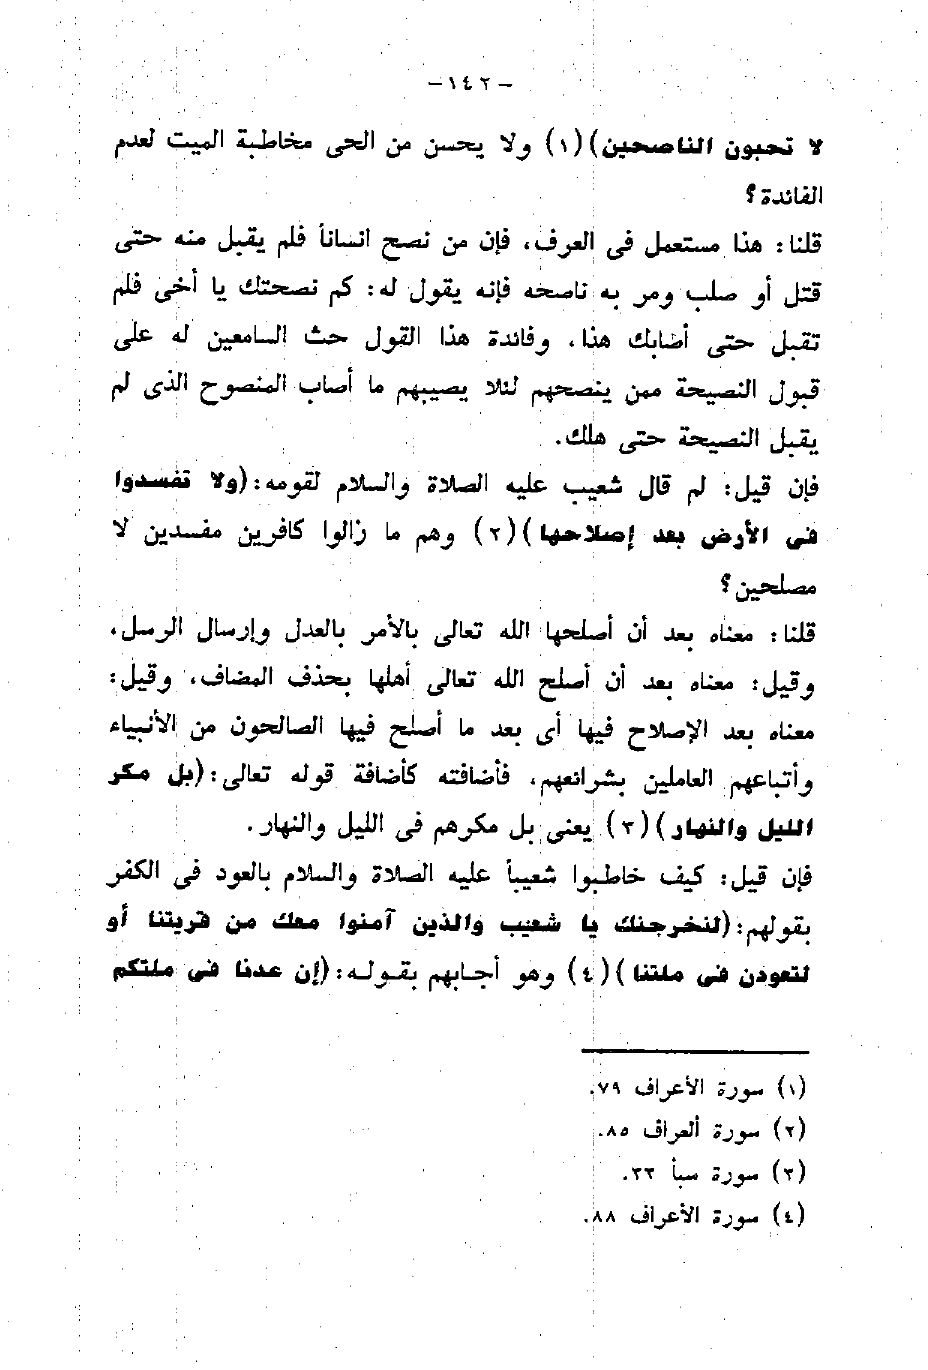 -١٤٢-
لا تحبون الناصحين)(١) ولا يحسن من الحى مخاطبة الميت لعدم
الفائدة؟
قلنا: هذا مستعمل فى العرف، فإن من نصح انساناً فلم يقبل منه حتى
قتل أو صلب ومر به ناصحه فإنه يقول له: كم نصحتك يا أخى فلم
تقبل حتى أضابك هذا، وفائدة هذا القول حث السامعين له على
قبول النصيحة ممن ينصحهم لئلا يصيبهم ما أصاب المنصوح الذى لم
يقبل النصيحة حتى هلك.
فإن قيل: لم قال شعيب عليه الصلاة والسلام لقومه:(ولا تفسدوا
فى الأرض بعد إصلاحها)(٢) وهم ما زالوا كافرين مفسدين لا
مصلحين؟
قلنا: معناه بعد أن أصلحها الله تعالى بالأمر بالعدل وإرسال الرسل،
وقيل: معناه بعد أن أصلح الله تعالى أهلها بحذف المضاف، وقيل:
معناه بعد الإصلاح فيها أى بعد ما أصلح فيها الصالحون من الأنبياء
وأتباعهم العاملين بشرائعهم، فأضافته كأضافة قوله تعالى:(بل مكر
الليل والنهار)(٣) يعنى بل مكرهم فى الليل والنهار.
فإن قيل: كيف خاطبوا شعيباً عليه الصلاة والسلام بالعود فى الكفر
بقولهم:(لنخرجنك يا شعيب والذين آمنوا معك من قريتنا أو
لتعودن فى ملتنا)(٤) وهو أجابهم بقوله:(إن عدنا فى ملتكم
(١) سورة الأعراف ٧٩.
(٢) سورة ألعراف ٨٥.
(٣) سورة سبأ ٣٣.
(٤) سورة الأعراف ٨٨.